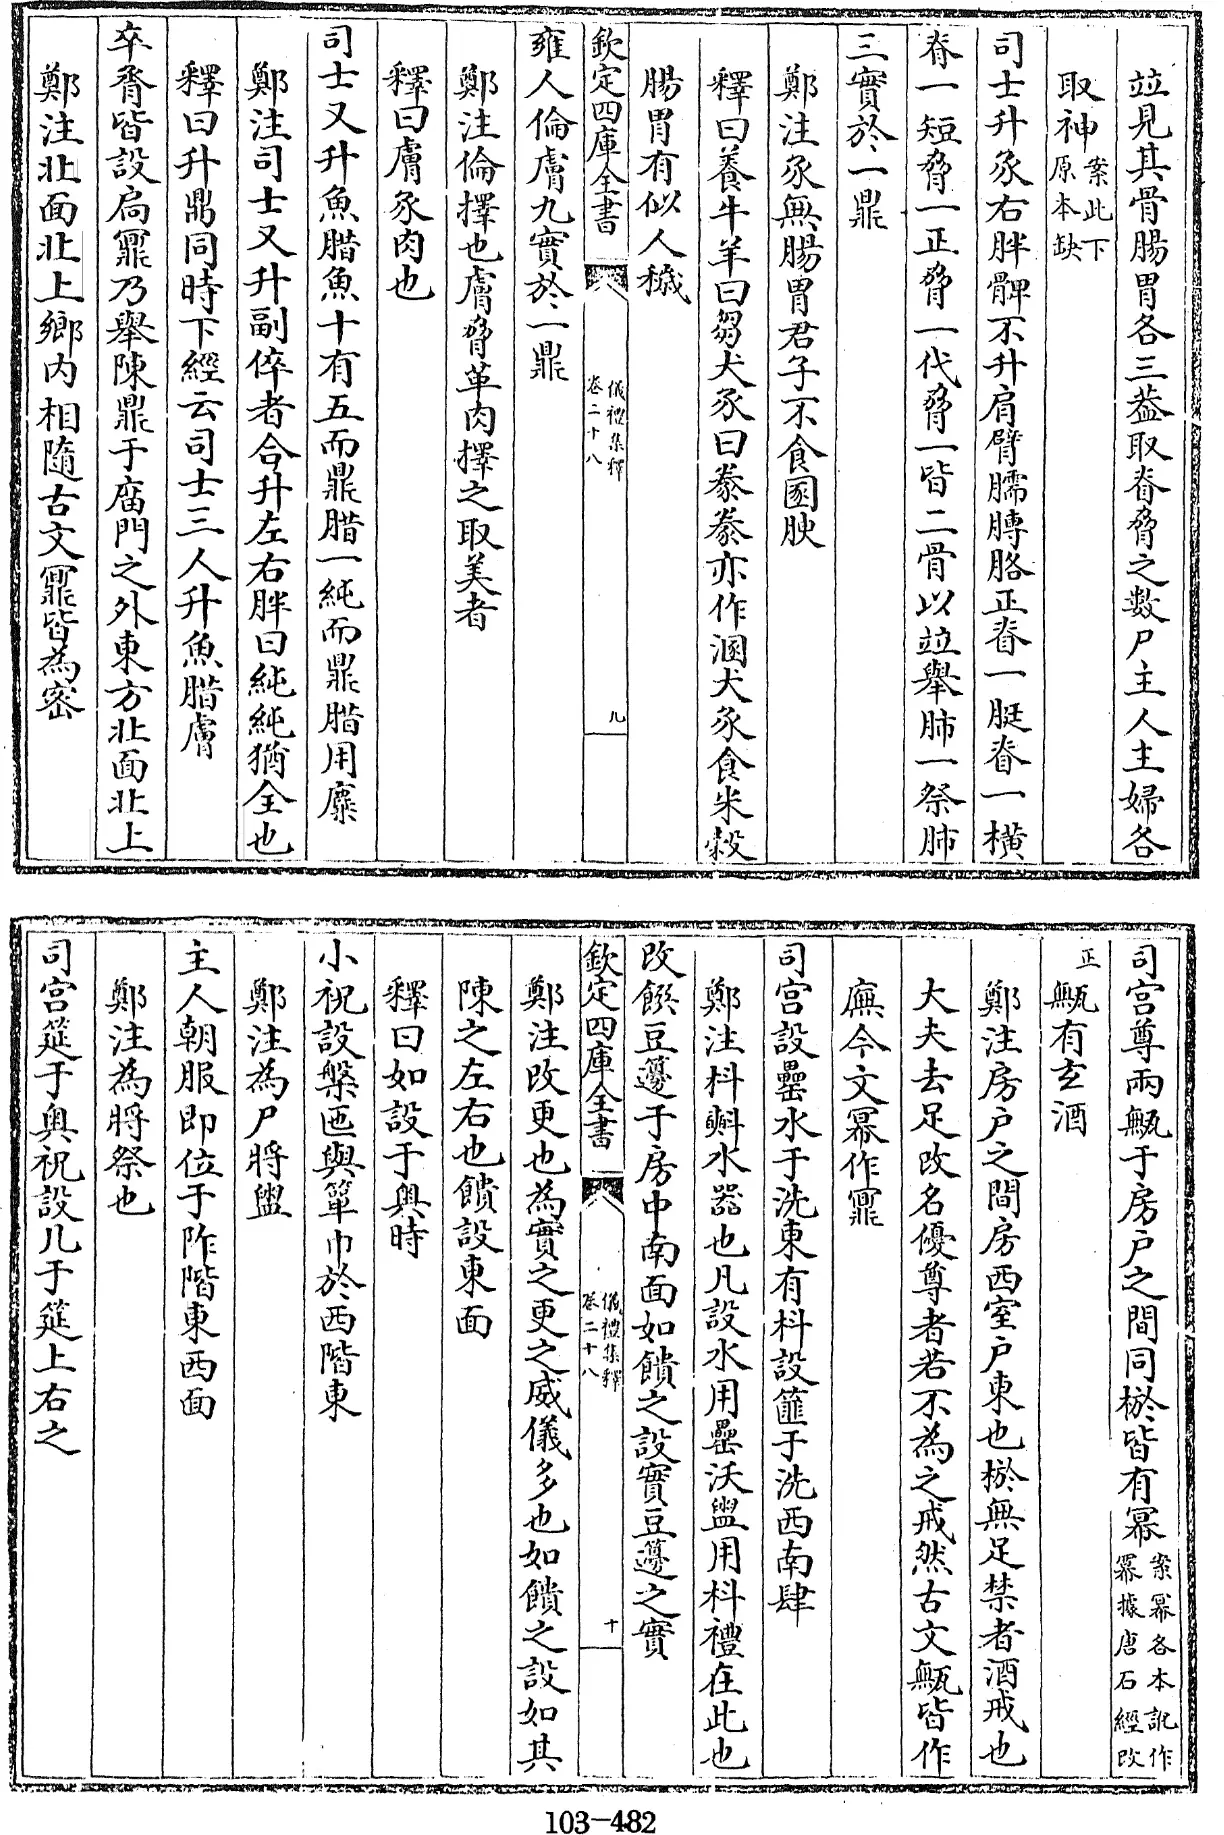 竝見其骨腸胃各三葢取脊脅之數尸主人主婦各
取神案此下原本缺
司士升豕右胖髀不升肩臂臑膊胳正脊一脡脊一橫
脊一短脅一正脅一代脅一皆二骨以竝舉肺一祭肺
三實於一鼎
鄭注豕無腸胃君子不食圂腴
釋曰養牛羊曰芻犬豕曰豢豢亦作溷犬豕食米穀
腸胃有似人穢
欽定四庫全書
儀禮集釋
卷二十八
九
雍人倫膚九實於一鼎
鄭注倫擇也膚脅革肉擇之取美者
釋曰膚豕肉也
司士又升魚腊魚十有五而鼎腊一純而鼎腊用麋
鄭注司士又升副倅者合升左右胖曰純純猶全也
釋曰升鼎同時下經云司士三人升魚腊膚
卒脀皆設扃鼏乃舉陳鼎于廟門之外東方北面北上
鄭注北面北上鄉内相隨古文鼏皆為密
司宫尊兩甒于房户之間同棜皆有幂案幂各本訛作鼏據唐石經改
正
甒有玄酒
鄭注房户之間房西室户東也棜無足禁者酒戒也
大夫去足改名優尊者若不為之戒然古文甒皆作
廡今文幂作鼏
司宫設罍水于洗東有枓設篚于洗西南肆
鄭注枓㪺水器也凡設水用罍沃盥用枓禮在此也
改饌豆籩于房中南面如饋之設實豆籩之實
欽定四庫全書
儀禮集釋
卷二十八
十
鄭注改更也為實之更之威儀多也如饋之設如其
陳之左右也饋設東面
釋曰如設于奥時
小祝設槃匜與簞巾於西階東
鄭注為尸將盥
主人朝服即位于阼階東西面
鄭注為將祭也
司宫筵于奥祝設几于筵上右之
103-482